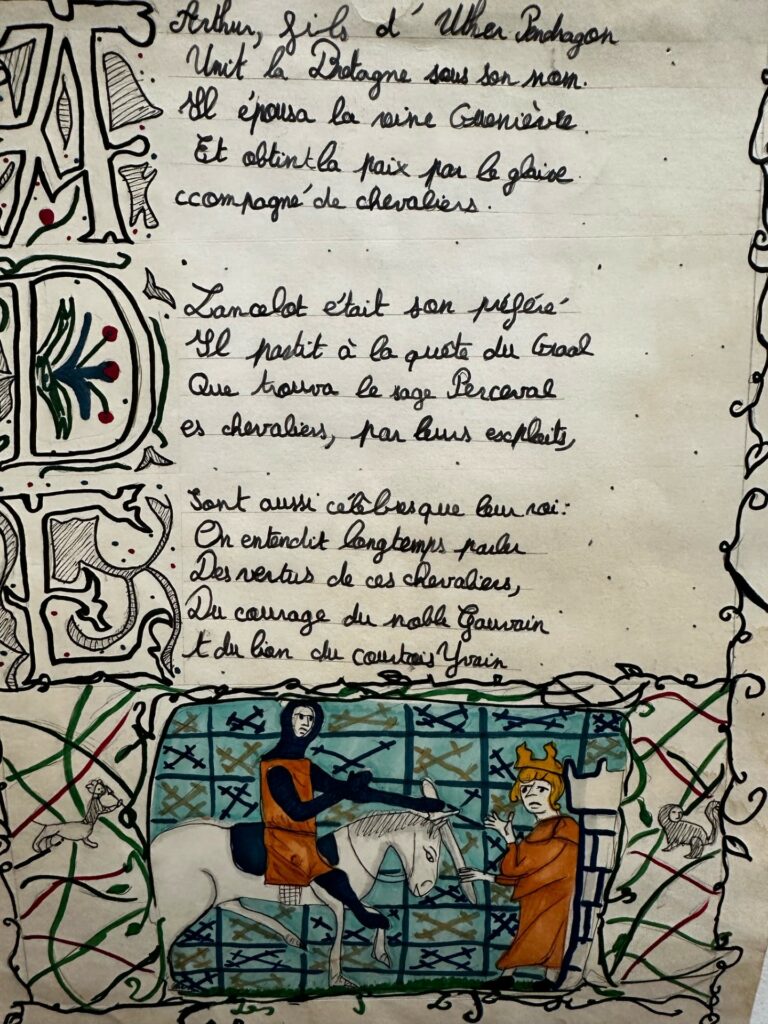 Arthur, fils d'Uther Pendragon
Unit la Bretagne sous son nom.
Il épousa la reine Guenièvre.
Et obtint la paix par le glaive.
A
ccompagné de chevaliers.
Lancelot était son préféré
Il partit à la quête du Graal
Que trouva le sage Perceval
D
es chevaliers, par leurs exploits,
Sont aussi célèbres que leur roi :
On entendit longtemps parler
Des vertus de ces chevaliers,
Du courage du noble Gauvain
E
t du lion du courtois Yvain